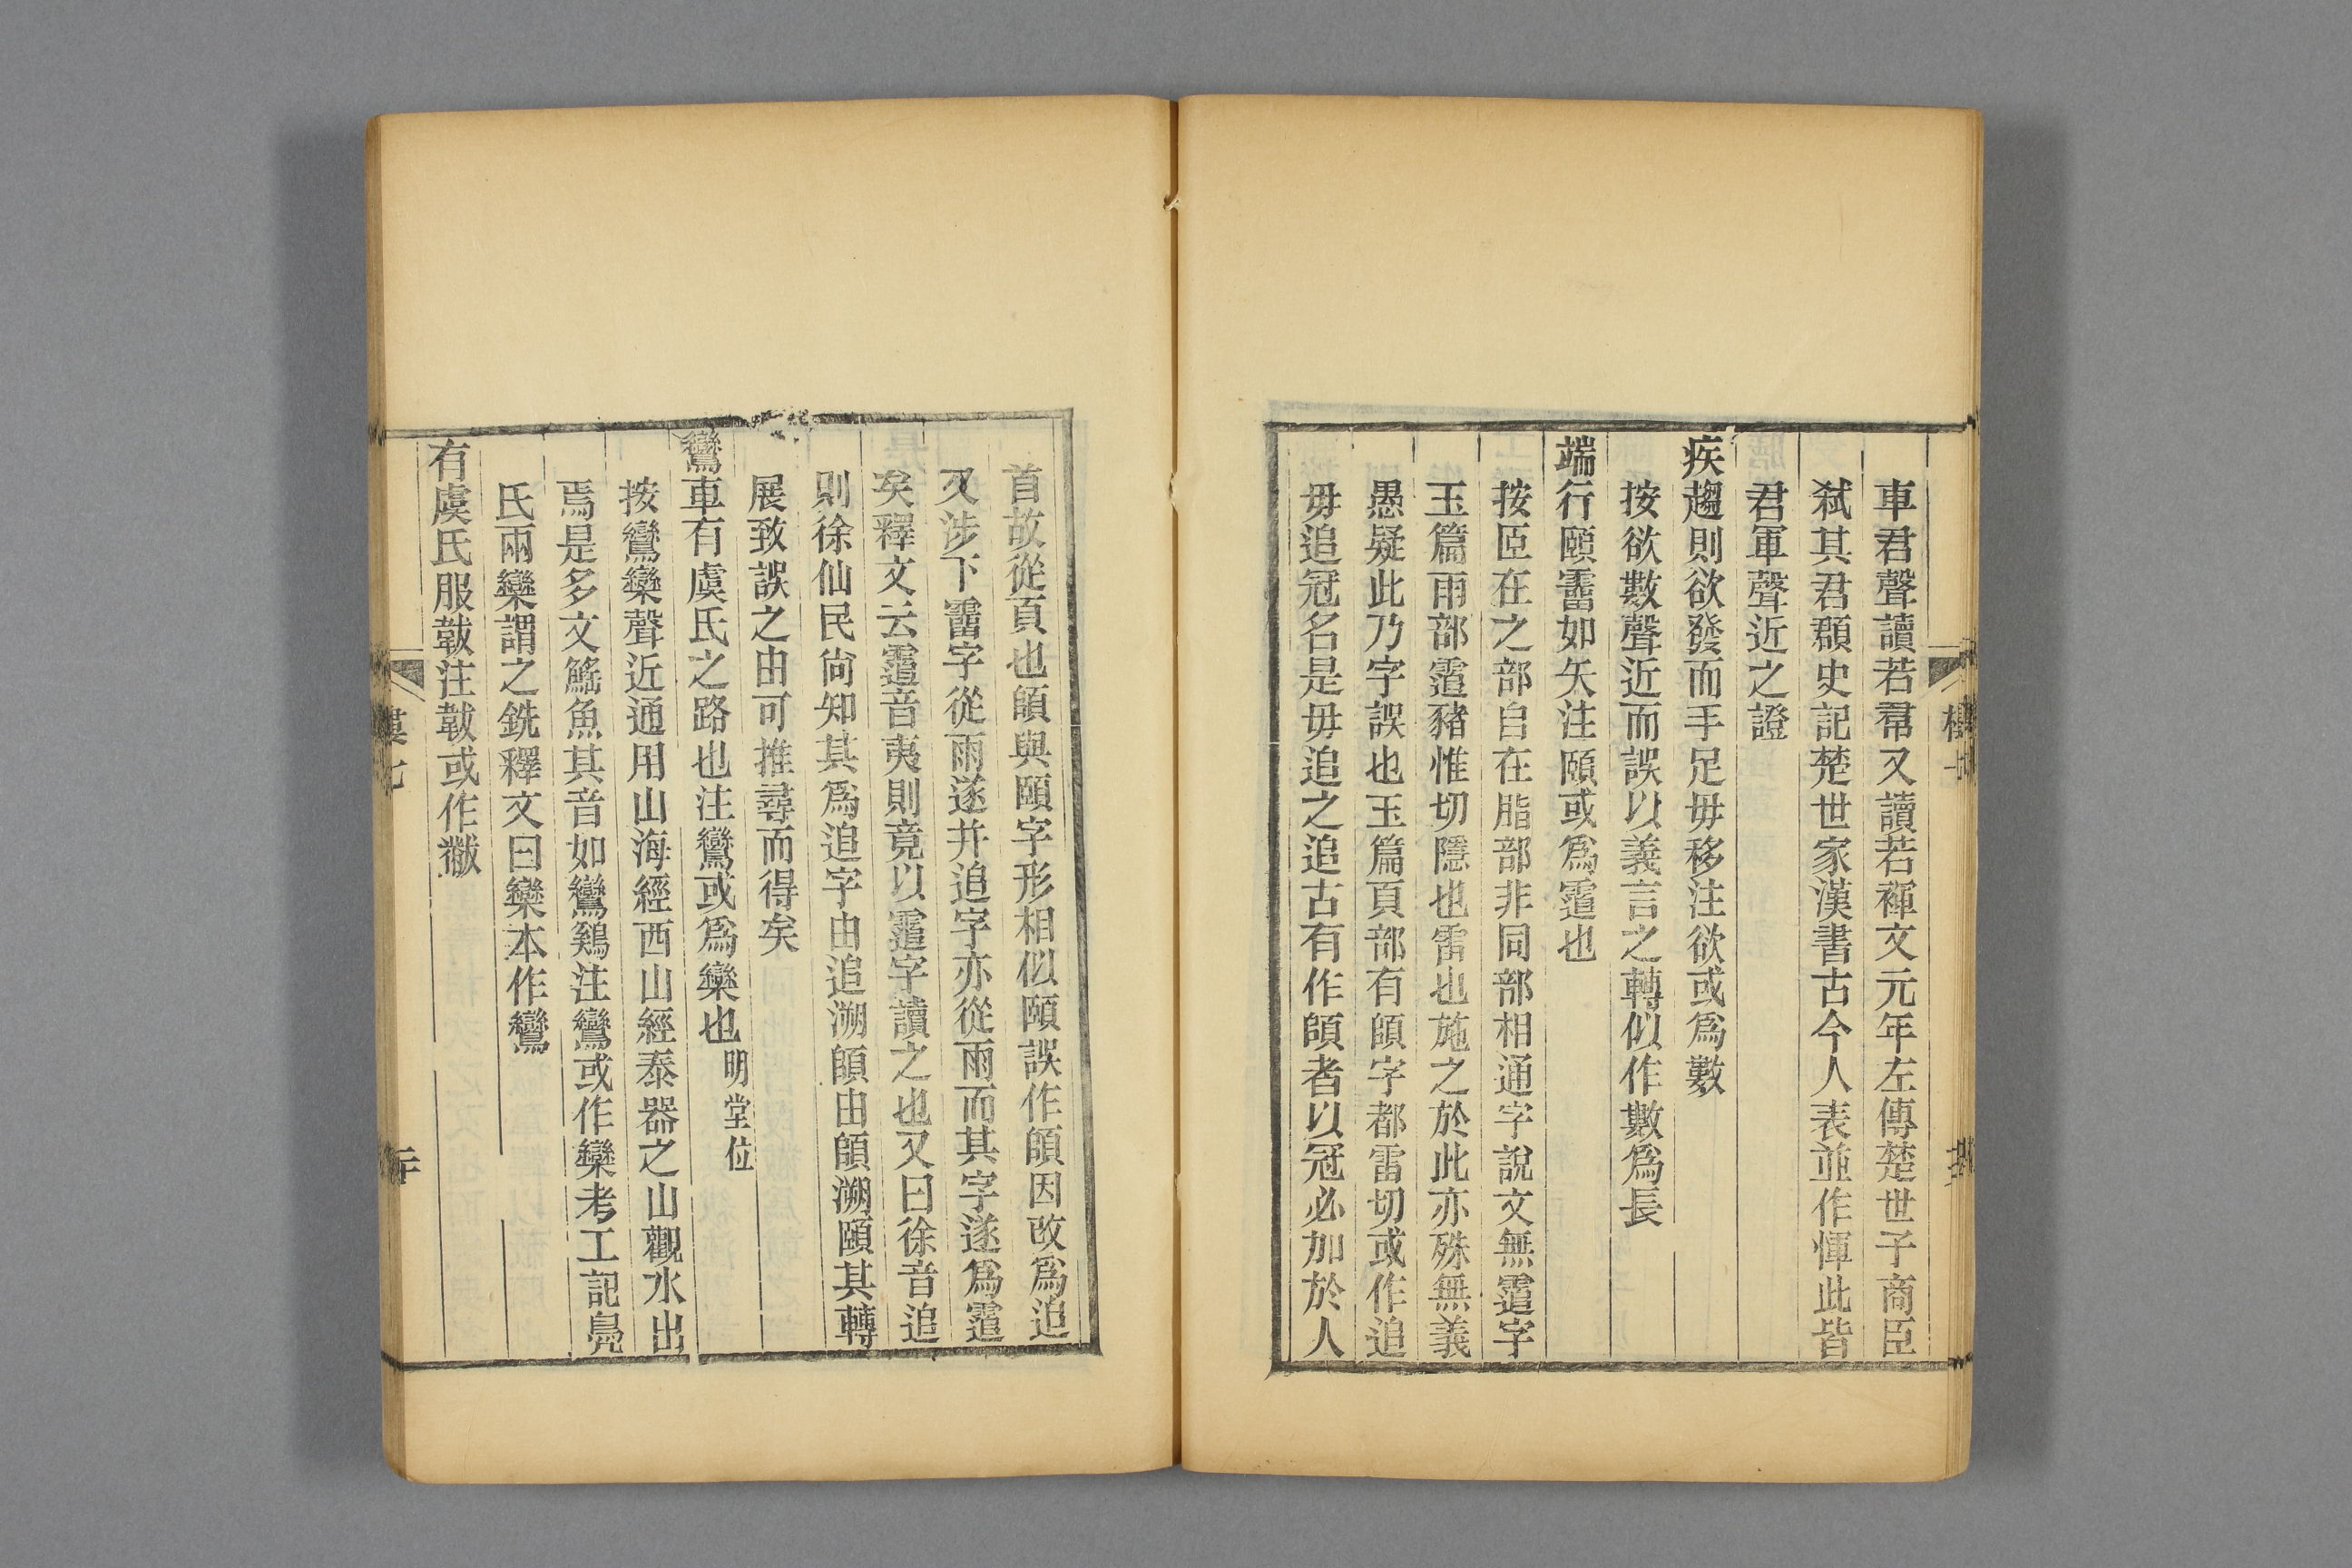 車君聲讀若帬又讀若褌文元年左傳楚世子商臣
弑其君頵史記楚世家漢書古今人表並作惲此皆
君軍聲近之證
疾趨則欲發而手足毋移注欲或爲數
按欲數聲近而誤以義言之轉似作數爲長
端行頤霤如矢注頤或爲霣也
按𦣞在之部𠂤在脂部非同部相通字說文無字
玉篇雨部豬惟切隱也雷也施之於此亦殊無義
愚疑此乃字誤也玉篇頁部有頧字都雷切或作追
毋追冠名是毋追之追古有作頧者以冠必加於人
首故從頁也頧與頤字形相似頤誤作頧因改爲追
又涉下霤字從雨遂并追字亦從雨而其字遂爲
矣釋文云音夷則竟以字讀之也又曰徐音追
則徐仙民尙知其爲追字由追溯頧由頧溯頤其轉
展致誤之由可推尋而得矣
鸞車有虞氏之路也注鸞或爲欒也明堂位
按鸞欒聲近通用山海經西山經泰器之山觀水出
焉是多文鰩魚其音如鸞鷄注鸞或作欒考工記鳧
氏兩欒謂之銑釋文曰欒本作鸞
有虞氏服韍注韍或作黻
樓七